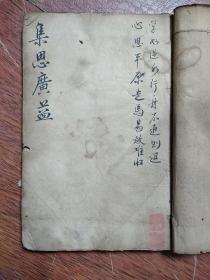 學如逆水行舟不進則退
心思平原走馬易放難收
集思廣益